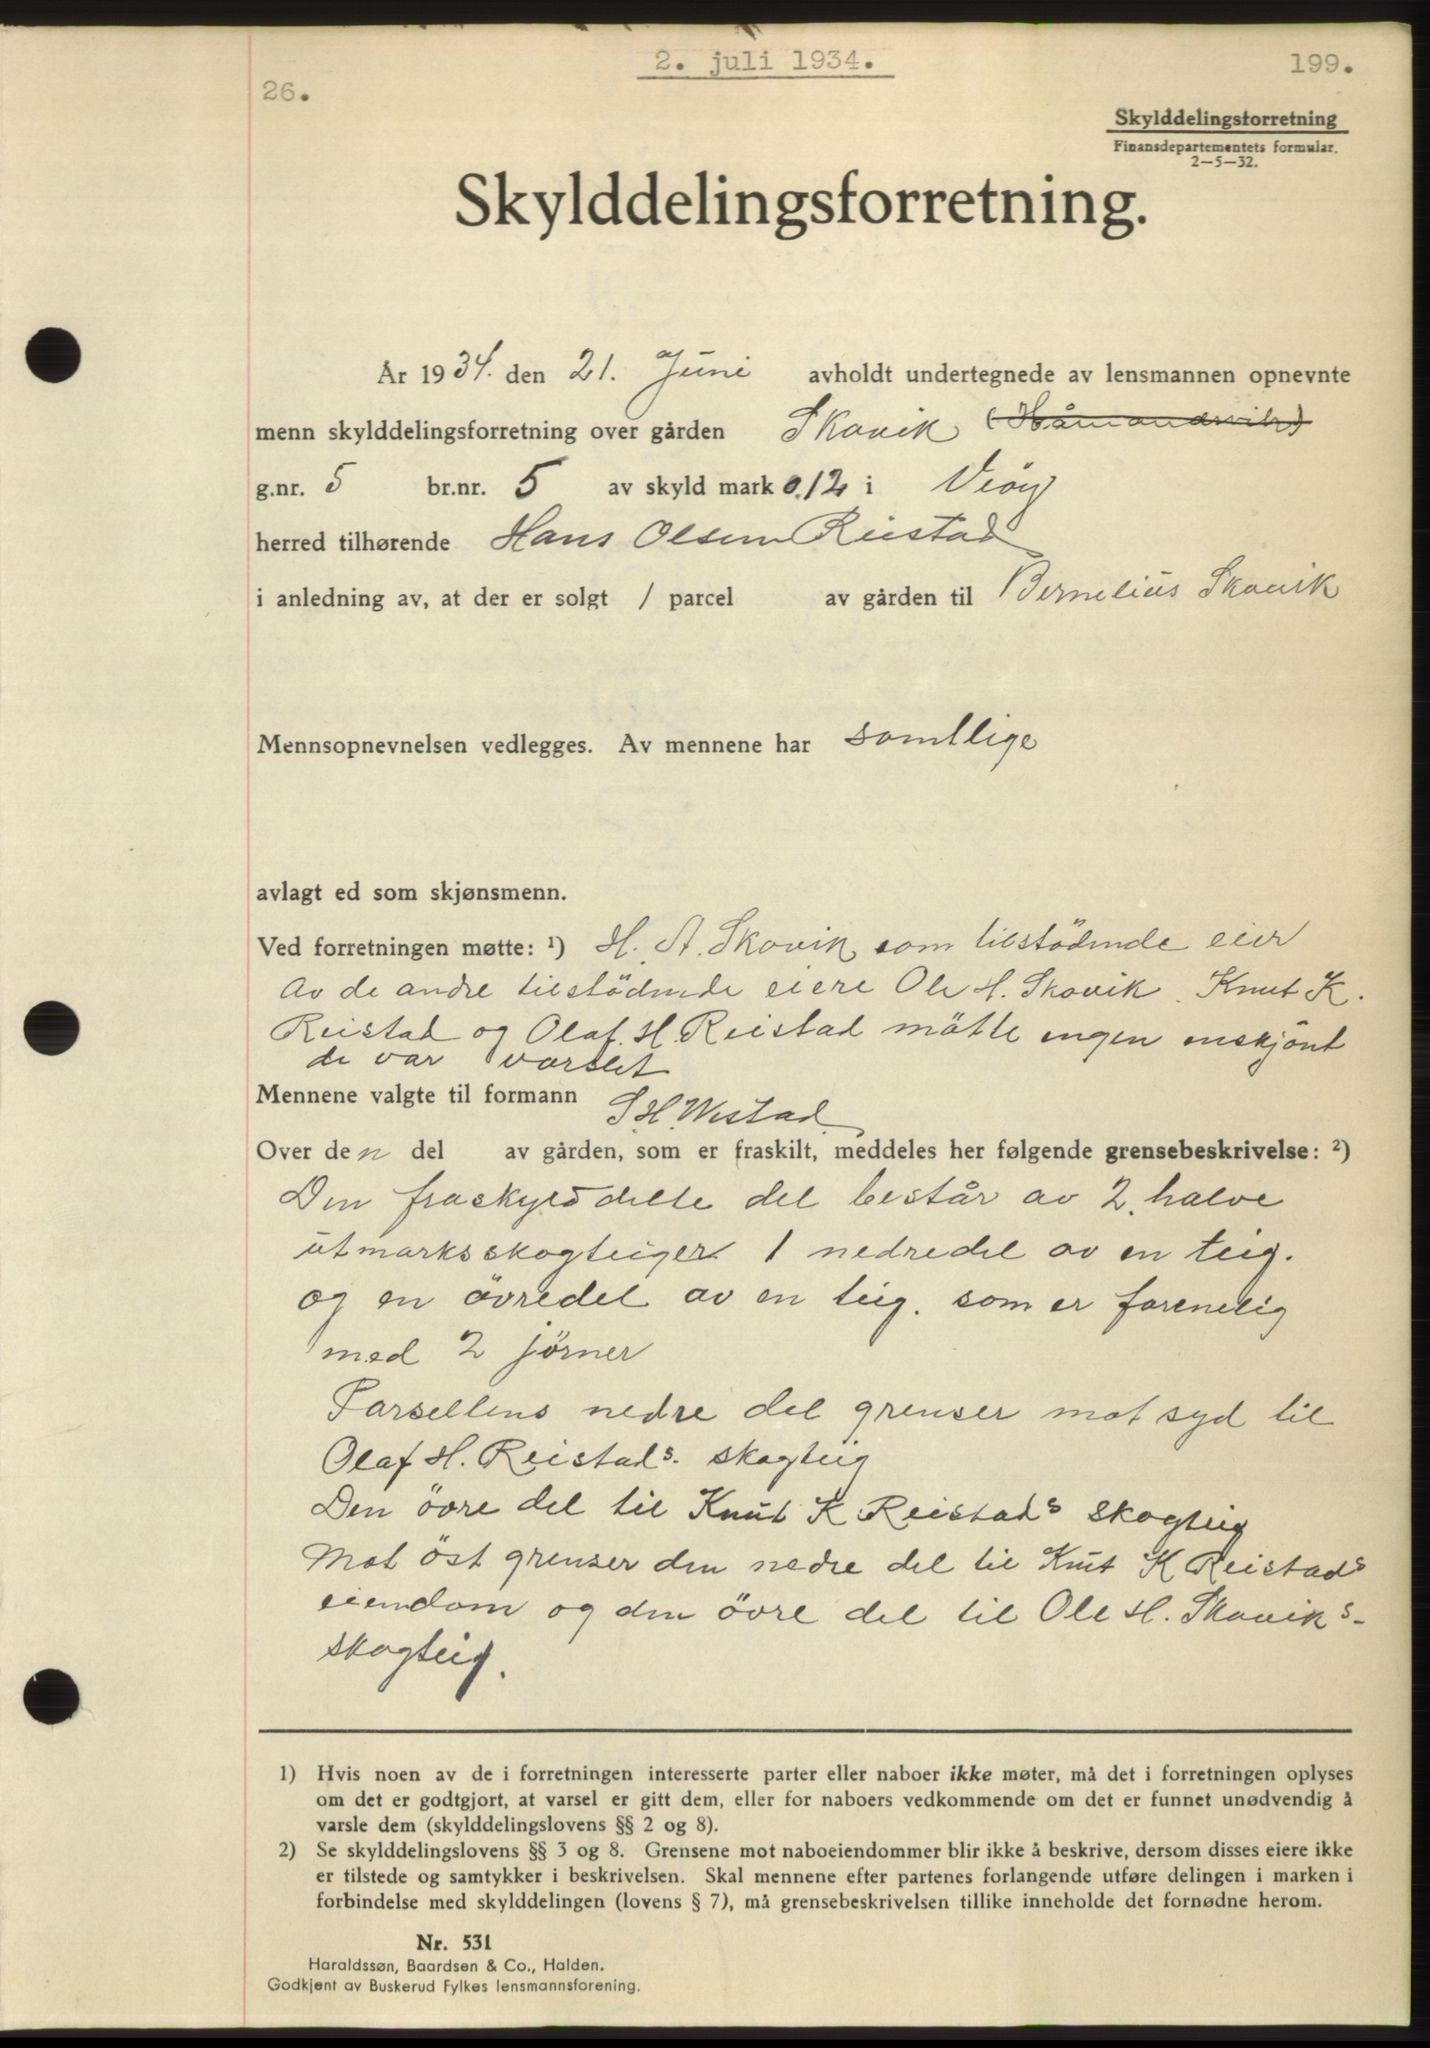 2. juli 1934.
199.
26.
Skylddelingsforretning
Finansdepartementets formular.
2—5—32.
Skylddelingsforretning.
År 1934. den 21. Juni avholdt undertegnede av lensmannen opnevnte
menn skylddelingsforretning over gården Skovik (Håmandsvik)
g.nr. 5 br.nr. 5 av skyld mark 0.12 i Veöy
herred tilhørende Hans Olsen Reistad
i anledning av, at der er solgt 1 parcel av gården til Bernelius Skovik
Mennsopnevnelsen vedlegges. Av mennene har samtlige
avlagt ed som skjønsmenn.
Ved forretningen møtte: ¹) H. A. Skovik som tilstödende eier
Av de andre tilstödende eiere Ole H. Skovik, Knut K.
Reistad og Olaf. H. Reistad mötte ingen enskjönt
de var varslet
Mennene valgte til formann S. H. Westad
Over den del av gården, som er fraskilt, meddeles her følgende grensebeskrivelse: ²)
Den fraskylddelte del består av 2 halve
utmarksskogteiger 1 nedredel av en teig.
og en övredel av en teig. som er forenelig
med 2 jörner
Parsellens nedre del grenser mot syd til
Olaf H. Reistads. skogteig
Den övre del til Knut K Reistads skogteig
Mot öst grenser den nedre del til Knut K Reistads
eiendom og den övre del til Ole H. Skoviks-
skogteig.
1) Hvis noen av de i forretningen interesserte parter eller naboer ikke møter, må det i forretningen oplyses
om det er godtgjort, at varsel er gitt dem, eller for naboers vedkommende om det er funnet unødvendig å
varsle dem (skylddelingslovens §§ 2 og 8).
2) Se skylddelingslovens §§ 3 og 8. Grensene mot naboeiendommer blir ikke å beskrive, dersom disses eiere ikke
er tilstede og samtykker i beskrivelsen. Skal mennene efter partenes forlangende utføre delingen i marken i
forbindelse med skylddelingen (lovens § 7), må grensebeskrivelsen tillike inneholde det fornødne herom.
Nr. 531
Haraldssøn, Baardsen & Co., Halden.
Godkjent av Buskerud Fylkes lensmannsforening.